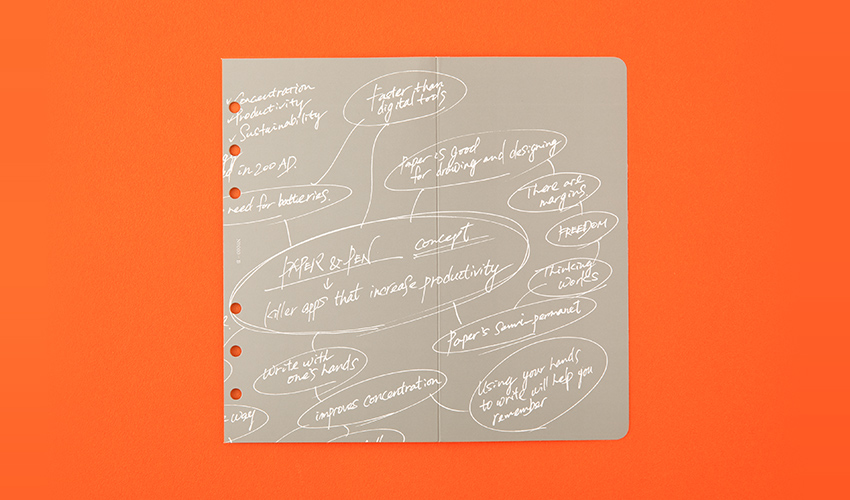 ✓Concentration
✓Productivity
✓Sustainability
Faster than
digital tools
d in 200 AD.
Paper is good
for drawing and designing
need for batteries.
There are
margins
FREEDOM
PAPER & PEN concept
↓
killer apps that increase productivity
Thinking
works
Paper's semi-permanet
Write with
one's hands
improves concentration
Using your hands
to write will help you
remember
way